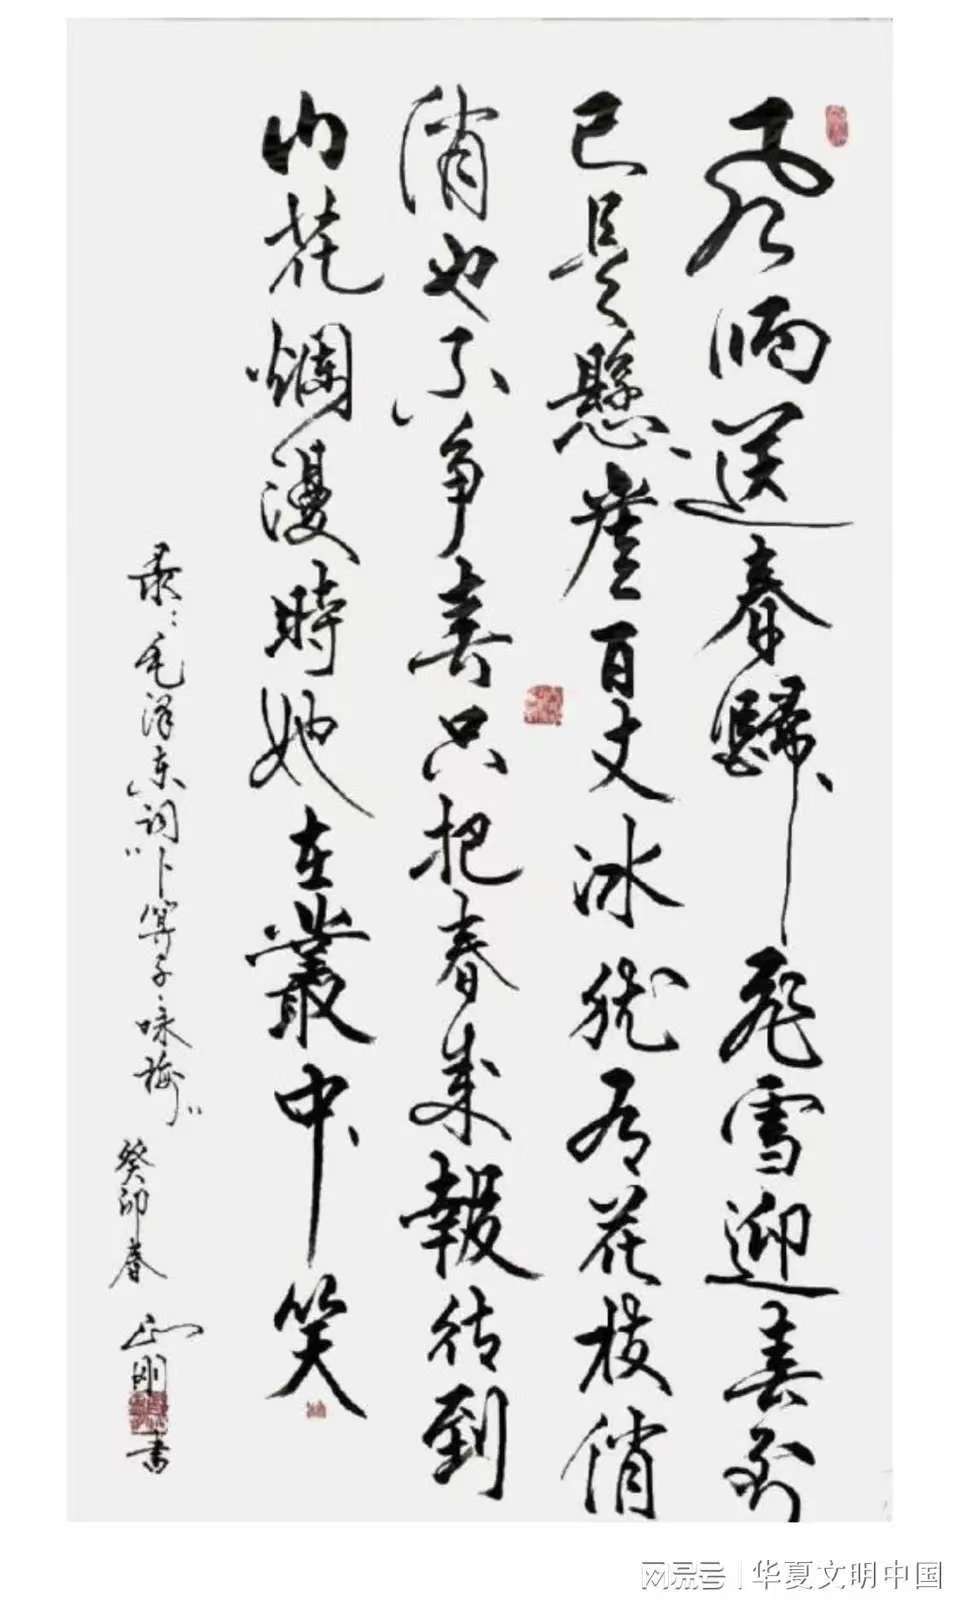 風雨送春歸飛雪迎春到
已是懸崖百丈冰猶有花枝俏
俏也不争春只把春来報待到
山花爛漫時她在叢中笑
录：毛泽东词“卜算子·咏梅” 癸卯春 正刚书
网易号 | 华夏文明中国